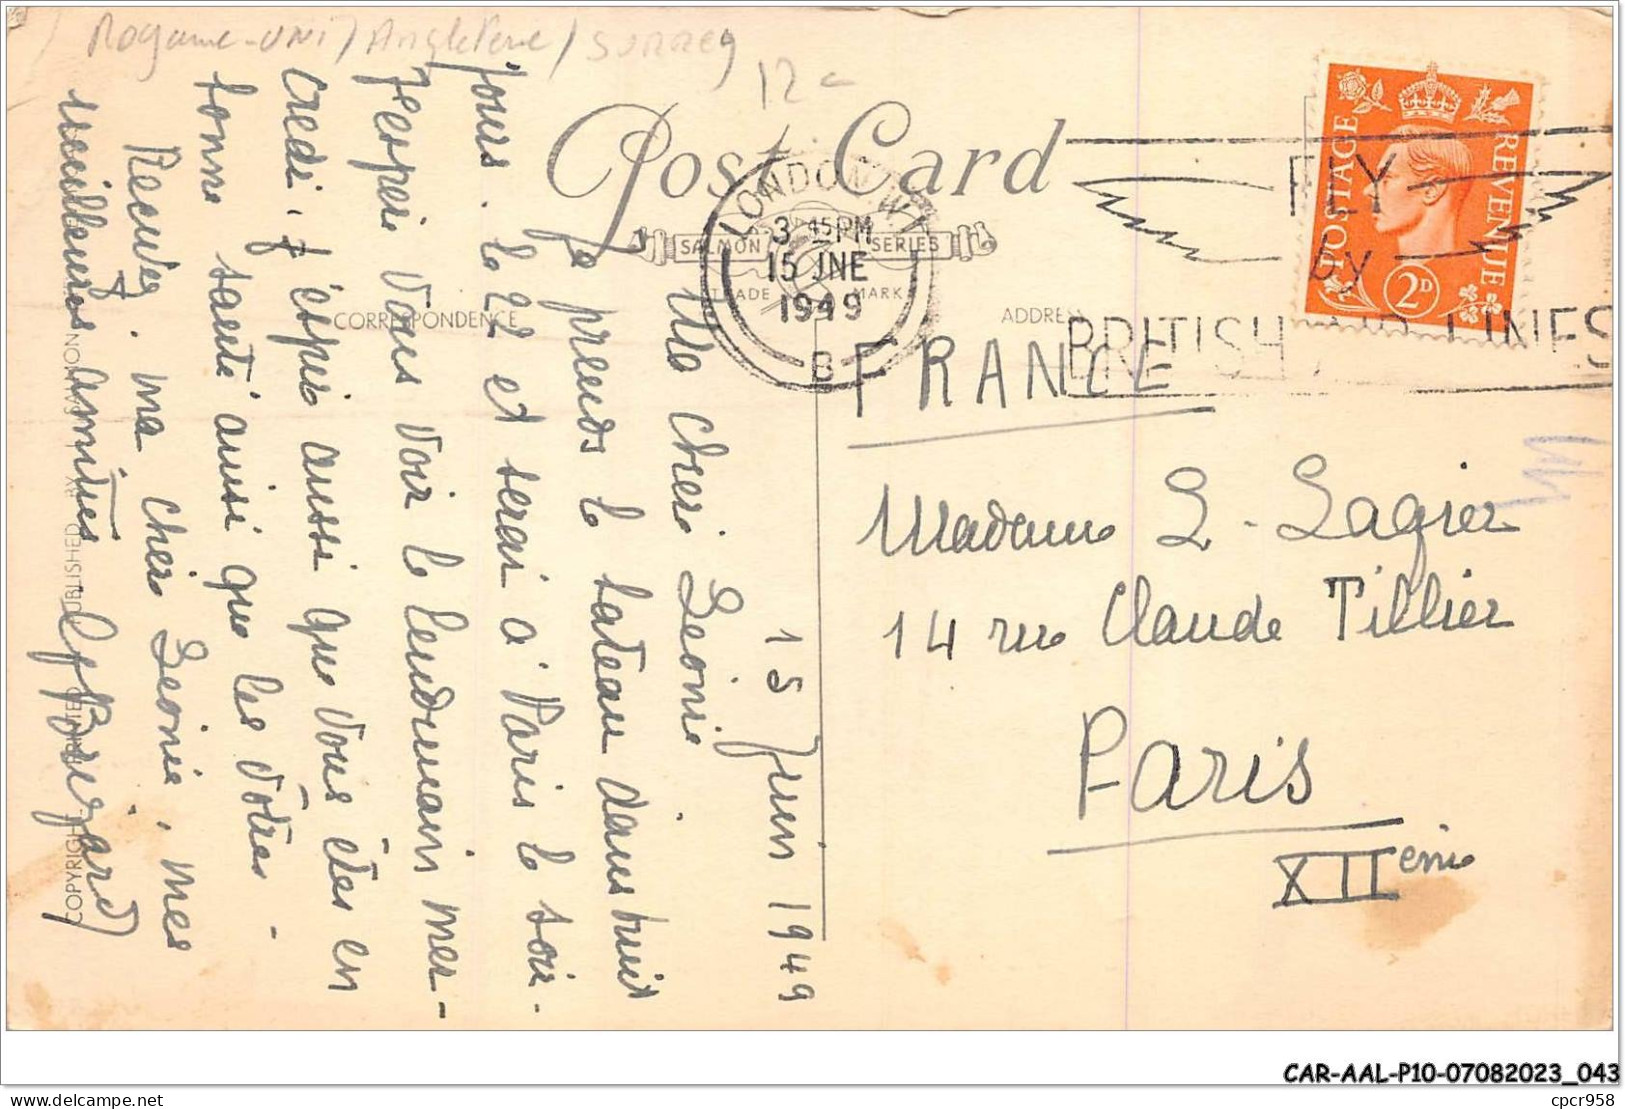 Royaume-Uni / Angleterre / Surrey
12
Post Card
SALMON SERIES
TRADE MARK
CORRESPONDENCE
ADDRESS
LONDON W1
3 15 PM
15 JNE
1949
B
FLY
by
BRITISH AIR LINES
POSTAGE
REVENUE
2D
15 Juin 1949
Ma chère Léonie
Je prends le bateau dans huit
jours. le 22 et serai à Paris le soir.
J'espère vous voir le lendemain mer-
credi. J'espère aussi que vous êtes en
bonne santé ainsi que les vôtres.
Recevez, ma chère Léonie, mes
meilleures amitiés
FRANCE
Madame L. Lagier
14 rue Claude Tillier
Paris
XIIeme
COPYRIGHT
PUBLISHED BY
CAR-AAL-P10-07082023_043
delcampe.net
cpcr958